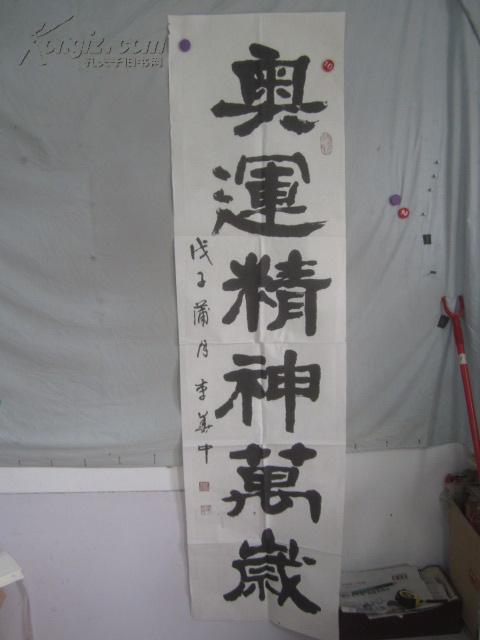 奥運精神萬歲
戊子蒲月 李華中
Kongfz.com
孔夫子旧书网